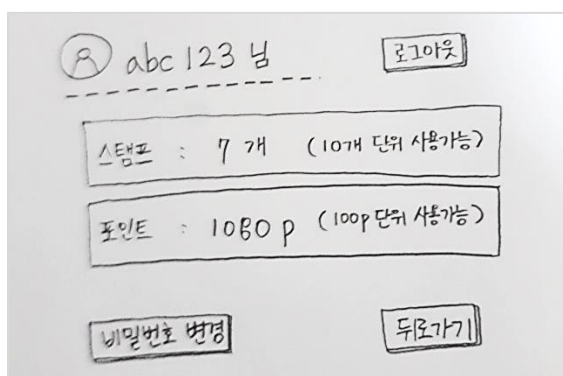 abc 123 님
로그아웃
스탬프 : 7 개 (10개 단위 사용가능)
포인트 : 1080 p (100p 단위 사용가능)
비밀번호 변경
뒤로가기